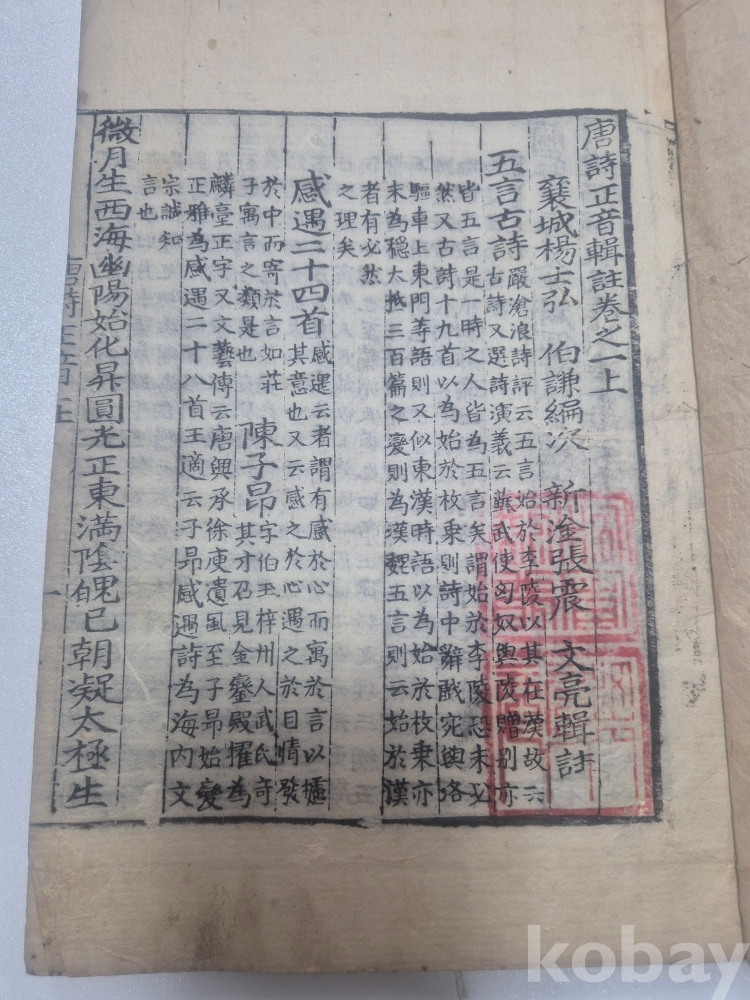 唐詩正音輯註卷之一上
襄城楊士弘 伯謙編次 新淦張震 文亮輯註
五言古詩
嚴滄浪詩評云五言始於李陵以其在漢故云
古詩又選詩演義云蘇武使匈奴與陵贈别亦
皆五言是一時之人皆為五言矣謂始於李陵恐未必
然又古詩十九首以為始於枚乗則詩中辭戲宛與洛
驅車上東門等語則又似東漢時語以為始於枚乗亦
未為穩大抵三百篇之變則為漢魏五言則云始於漢
者有必然
之理矣
感遇三十四首
感遇云者謂有感於心而寓於言以攄
其意也又云感之於心遇之於目情發
於中而寄於言如莊
子寓言之類是也
陳子昂
字伯玉梓州人武氏奇
其才召見金鑾殿擢為
麟臺正字又文藝傳云唐興承徐庾遺風至子昂始變
正雅為感遇二十八首王適云子昂感遇詩為海内文
宗誠知
言也
微月生西海幽陽始化昇圓光正東滿陰魄已朝凝太極生
唐詩正音
一
kobay